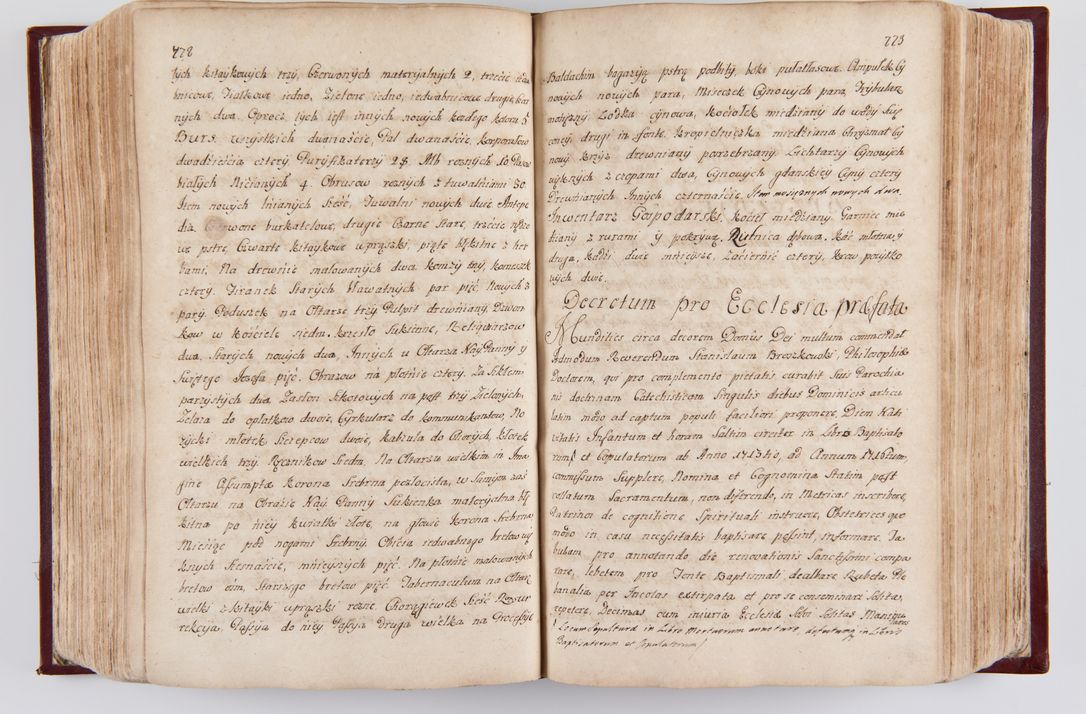 772
tych kitaykowych trzy, Czerwonych materyalnych 2, trzecie
bnicowe, Fiałkowe iedno, Zielone iedno, iedwabnicowe drugie,
nych dwa. Oprocz tych iest innych nowych kazdego koloru 5
Burs wszystkich dwanascie, Pal dwanascie, korporałow
dwadziescia cztery, Puryfikaterzy 28. Alb roznych 10 Paskow
białych Nicianych 4. Obrusow roznych z tuwalniami 30.
Item nowych lnianych szesc, Tuwalni nowych dwie Antepe
dia, Czerwone burkatelowe, drugie Czarne stare, trzecie
we pstre, Czwarte kitaykowe w prązki, piąte błękitne z her
bami, Na drewnie malowanych dwa, komzy trzy, komeszek
cztery. Firanek Starych Hawatnych par pięć, Nowych 3
pary. Poduszek na Ołtarze trzy Pulpit drewniany, Dzwon
kow w Kosciele siedm. krzesło Sukienne, Religwiarzow
dwa, Starych nowych dwa, Innych u Ołtarza Nay Panny y
Swiętego Jozefa pięć. Obrazow na płotnie cztery. Za Szkłem
parzystych dwa Zasłon Szkotowych na post trzy Zielonych,
Zelaza do opłatkow dwoie, Cyrkularz do kommunikantow, No
zycki młotek Szczepcow dwoie, katzula do Chorych, kłotek
wielkich trzy. Ręcznikow Siedm. Na Ołtarzu wielkim in Ima
gine Assumptæ korona Srebrna pozłocista, w Samym zas
Ołtarzu na Obrazie Nay Panny Sukienka materyalna błę
kitna po niey kwiatki złote, na głowie korona Srebrna
Miesiąc pod nogami Srebrny, Obicia iedwabnego bretow wię
kszych Szesnascie, mnieyszych pięć. Na płotnie malowanych
bretow osm, Starszego bretow pięć. Tabernaculum na Ołtarz
wielki z kitayki w prązki rozne, Chorągiewek Szesc Rezur
rekcya, Passya do niey Passya druga wielka na Processye
773
Baldachin bagazyą pstrą podbity, boki pułatłasowe, Ampułek Cy
nowych nowych para, Miseczek Cynowych para Trybularz
mosięzny Łodka cynowa, Kociołek miedziany do wody Swię
coney, drugi in fonte. kropielniczka miedziana Chrysmat Cy
nowy krzyz drewniany posrzebrzany Lichtarzy Cynowych
większych z czopami dwa, Cynowych gdanskiey Cyny cztery
Drewnianych Innych czternascie Item mosięznych nowych dwa.
Inwentarz Gospodarski, kocieł miedziany Garniec mie
dziany z rurami y pokrywą. Kufnica dębowa. kadz młotna, y
druga, kadzi dwie mnieysze, zaciernie cztery, krow pozytko
wych dwie.
Decretum pro Ecclesia præfata
Munditics circa decorem Domûs Dei multum commendat
Admodum Reverendum Stanislaum Broszkowski, Philosophiæ
Doctorem, qui pro complemento pietatis curabit Suis Parochia
nis doctrinam Catechisticam Singulis diebus Dominicis articu
latim modo ad captum populi faciliori proponere, Diem Nati
vitatis Infantum et horam Saltim circiter in Libro Baptisato
rum et Copulatorum ab Anno 1713tio, ad Annum 1716tum
commissum Supplere, Nomina et Cognomina Statim post
collatum Sacramentum, non differendo, in Metricas inscribere,
Patrinos de cognitione Spirituali instruere, Obstetrices quo
modo in casu necessitatis baptisare possint, informare. Ta
bulam pro annotando die renovationis Sanctissimi compa
rare, lebetem pro Fonte Baptismali dealbare, Rubeta Ple
banalia per Incolas extirpata et pro se conseminari Solita,
repetere, Decimas cum injuria Ecclesiæ Sibi Solitas Manipu
lares
/ Locum Sepulturæ in Libro Mortuorum annotare, defectum in Libris
Baptisatorum et Copulatorum/